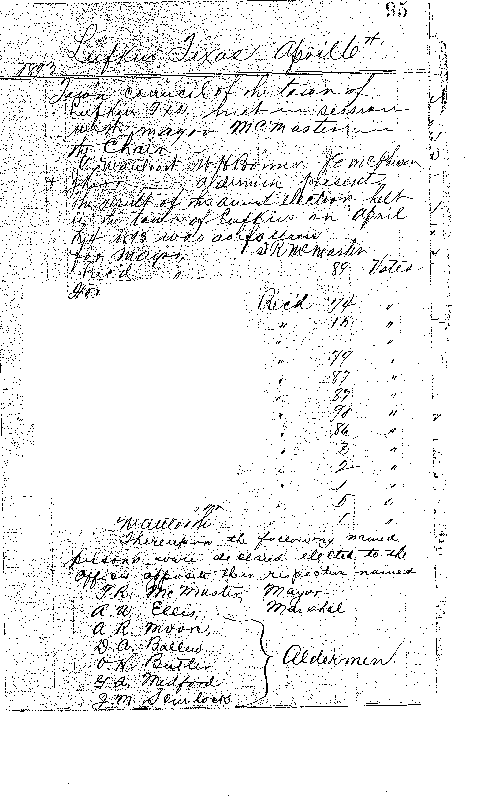 95
Lufkin Texas April 6th
1893
Town Council of the town of
Lufkin Tex met in session
with mayor McMaster in
the Chair
W H Bonner
Aldermen present
The result of the election held
in the town of Lufkin on April
1893 was as follows
for Mayor
Rec'd " 89 Votes
For
Rec'd 74 "
" 15 "
" "
" 79 "
" 87 "
" 87 "
" 98 "
" 86 "
" 2 "
" 2 "
" 1 "
" 5 "
" 1 "
Thereupon the following named
persons were declared elected to the
offices opposite their respective names
McMaster Mayor
A W Ellis Marshal
A R Moon
D A Ballew
O N Butler
G A Medford
J M Scurlock
Aldermen